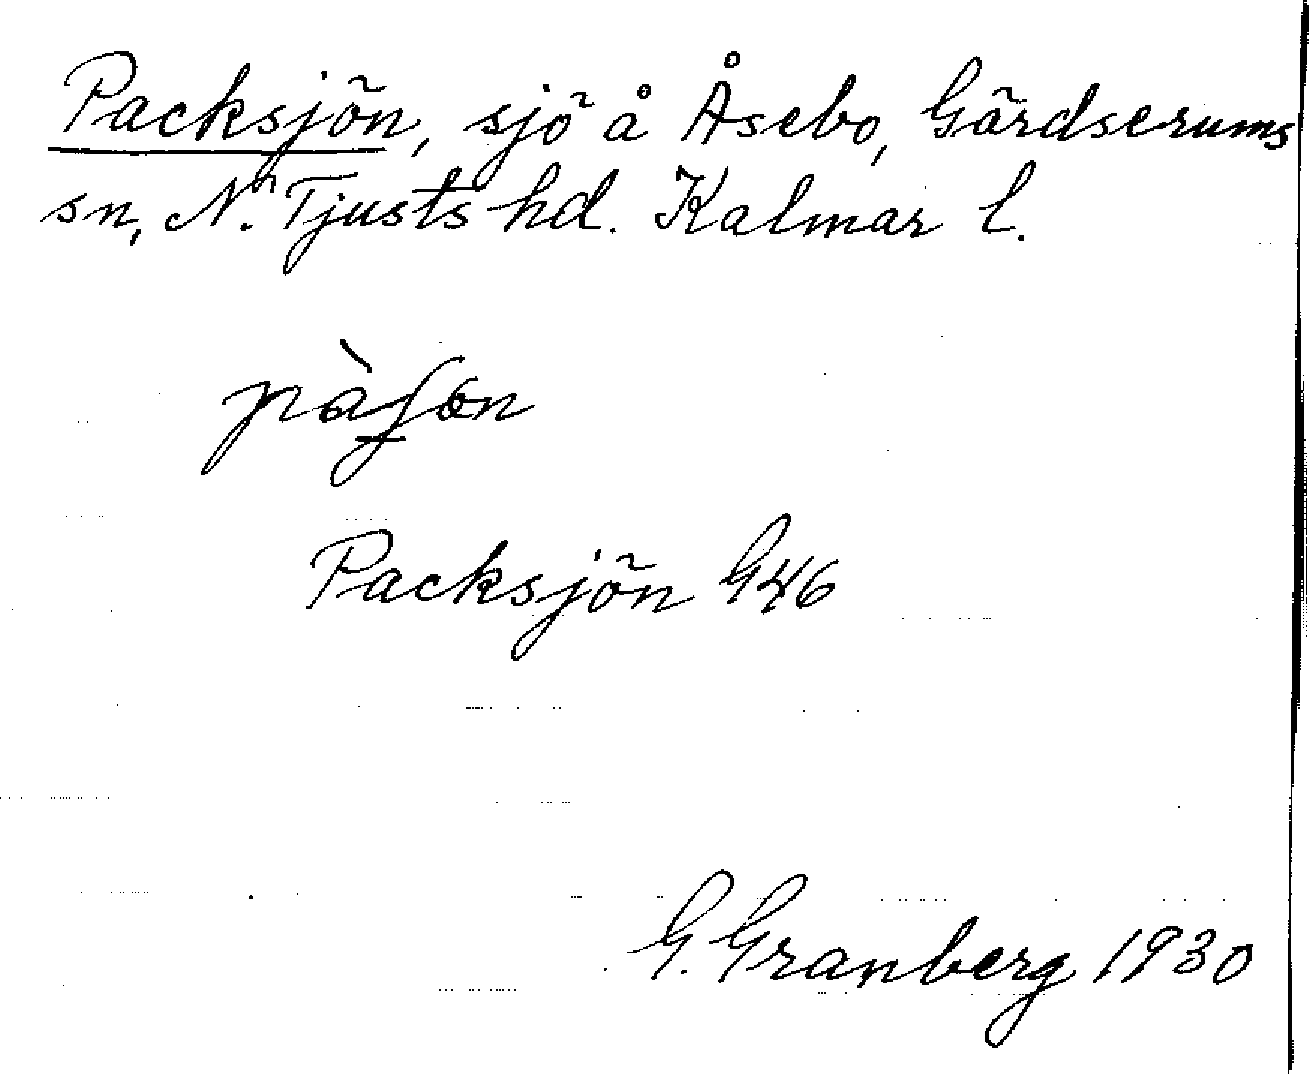 Packsjön, sjö å Åsebo, Gärdserums
sn, N. Tjusts hd. Kalmar l.
Packsjön G46
G. Granberg 1930